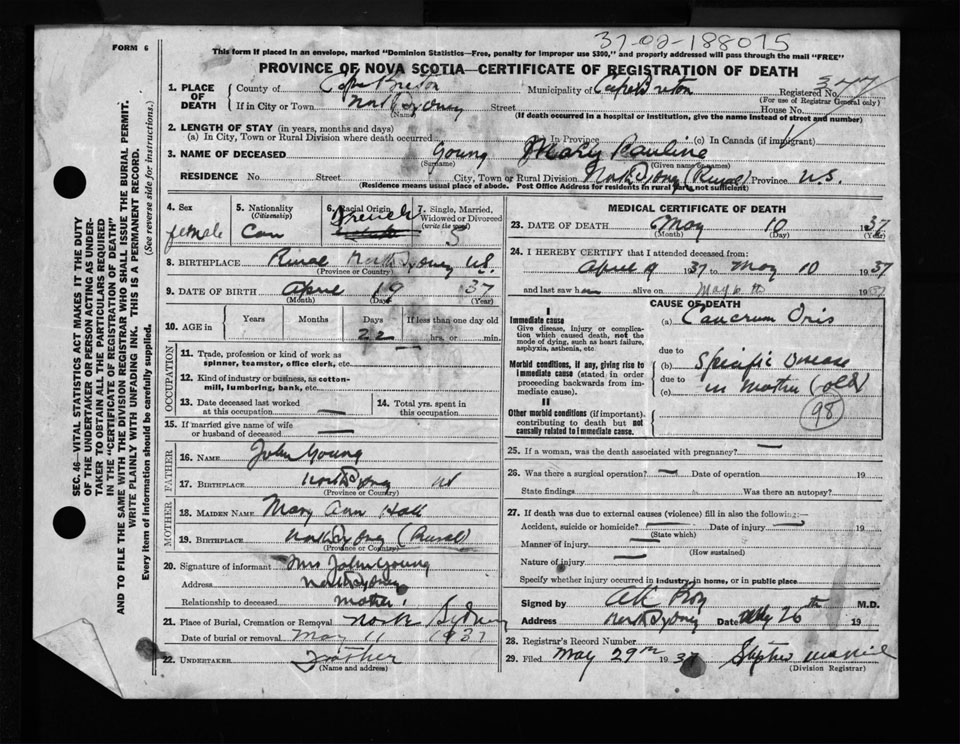 37-02-188075
FORM 6
This form if placed in an envelope, marked "Dominion Statistics—Free, penalty for improper use $300," and properly addressed will pass through the mail "FREE"
PROVINCE OF NOVA SCOTIA—CERTIFICATE OF REGISTRATION OF DEATH
1. PLACE OF DEATH
County of Cape Breton Municipality of Cape Breton Registered No. 347
(For use of Registrar General only)
If in City or Town North Sydney Street House No.
(Name) (If death occurred in a hospital or institution, give the name instead of street and number)
2. LENGTH OF STAY (in years, months and days)
(a) In City, Town or Rural Division where death occurred (b) In Province (c) In Canada (if immigrant)
3. NAME OF DECEASED Young Mary Pauline
(Surname) (Given name or names)
RESIDENCE No. Street City, Town or Rural Division North Sydney (Rural) Province N.S.
(Residence means usual place of abode. Post Office Address for residents in rural parts not sufficient)
4. Sex female
5. Nationality (Citizenship) Can
6. Racial Origin French
7. Single, Married, Widowed or Divorced (write the word) S
8. BIRTHPLACE Rural North Sydney N.S.
(Province or Country)
9. DATE OF BIRTH April 19 37
(Month) (Day) (Year)
10. AGE in Years Months Days If less than one day old
22 hrs. or min.
OCCUPATION
11. Trade, profession or kind of work as spinner, teamster, office clerk, etc.
12. Kind of industry or business, as cotton-mill, lumbering, bank, etc.
13. Date deceased last worked at this occupation
14. Total yrs. spent in this occupation
15. If married give name of wife or husband of deceased
FATHER
16. NAME John Young
17. BIRTHPLACE North Sydney NS
(Province or Country)
MOTHER
18. MAIDEN NAME Mary Ann Hall
19. BIRTHPLACE North Sydney (Rural)
(Province or Country)
20. Signature of informant Mrs John Young
Address North Sydney
Relationship to deceased mother
21. Place of Burial, Cremation or Removal North Sydney
Date of burial or removal May 11 1937
22. UNDERTAKER Father
(Name and address)
MEDICAL CERTIFICATE OF DEATH
23. DATE OF DEATH May 10 1937
(Month) (Day) (Year)
24. I HEREBY CERTIFY that I attended deceased from:
April 19 1937 to May 10 1937
and last saw h alive on May 6th 1937
CAUSE OF DEATH
I
Immediate cause
Give disease, injury, or complication which caused death, not the mode of dying, such as heart failure, asphyxia, asthenia, etc.
(a) Cancrum Oris
due to
Morbid conditions, if any, giving rise to immediate cause (stated in order proceeding backwards from immediate cause).
(b) Specific Disease
due to
(c) in Mother (old)
98
II
Other morbid conditions (if important) contributing to death but not causally related to immediate cause.
25. If a woman, was the death associated with pregnancy?
26. Was there a surgical operation? Date of operation 19
State findings Was there an autopsy?
27. If death was due to external causes (violence) fill in also the following:
Accident, suicide or homicide? Date of injury 19
(State which)
Manner of injury
(How sustained)
Nature of injury
Specify whether injury occurred in industry, in home, or in public place
Signed by M.D.
Address North Sydney Date May 26th 19
28. Registrar's Record Number
29. Filed May 29th 1937
(Division Registrar)
SEC. 46—VITAL STATISTICS ACT MAKES IT THE DUTY
OF THE UNDERTAKER OR PERSON ACTING AS UNDER-
TAKER TO OBTAIN ALL THE PARTICULARS REQUIRED
IN THE "CERTIFICATE OF REGISTRATION OF DEATH"
AND TO FILE THE SAME WITH THE DIVISION REGISTRAR WHO SHALL ISSUE THE BURIAL PERMIT.
WRITE PLAINLY WITH UNFADING INK. THIS IS A PERMANENT RECORD.
Every item of information should be carefully supplied. (See reverse side for instructions.)